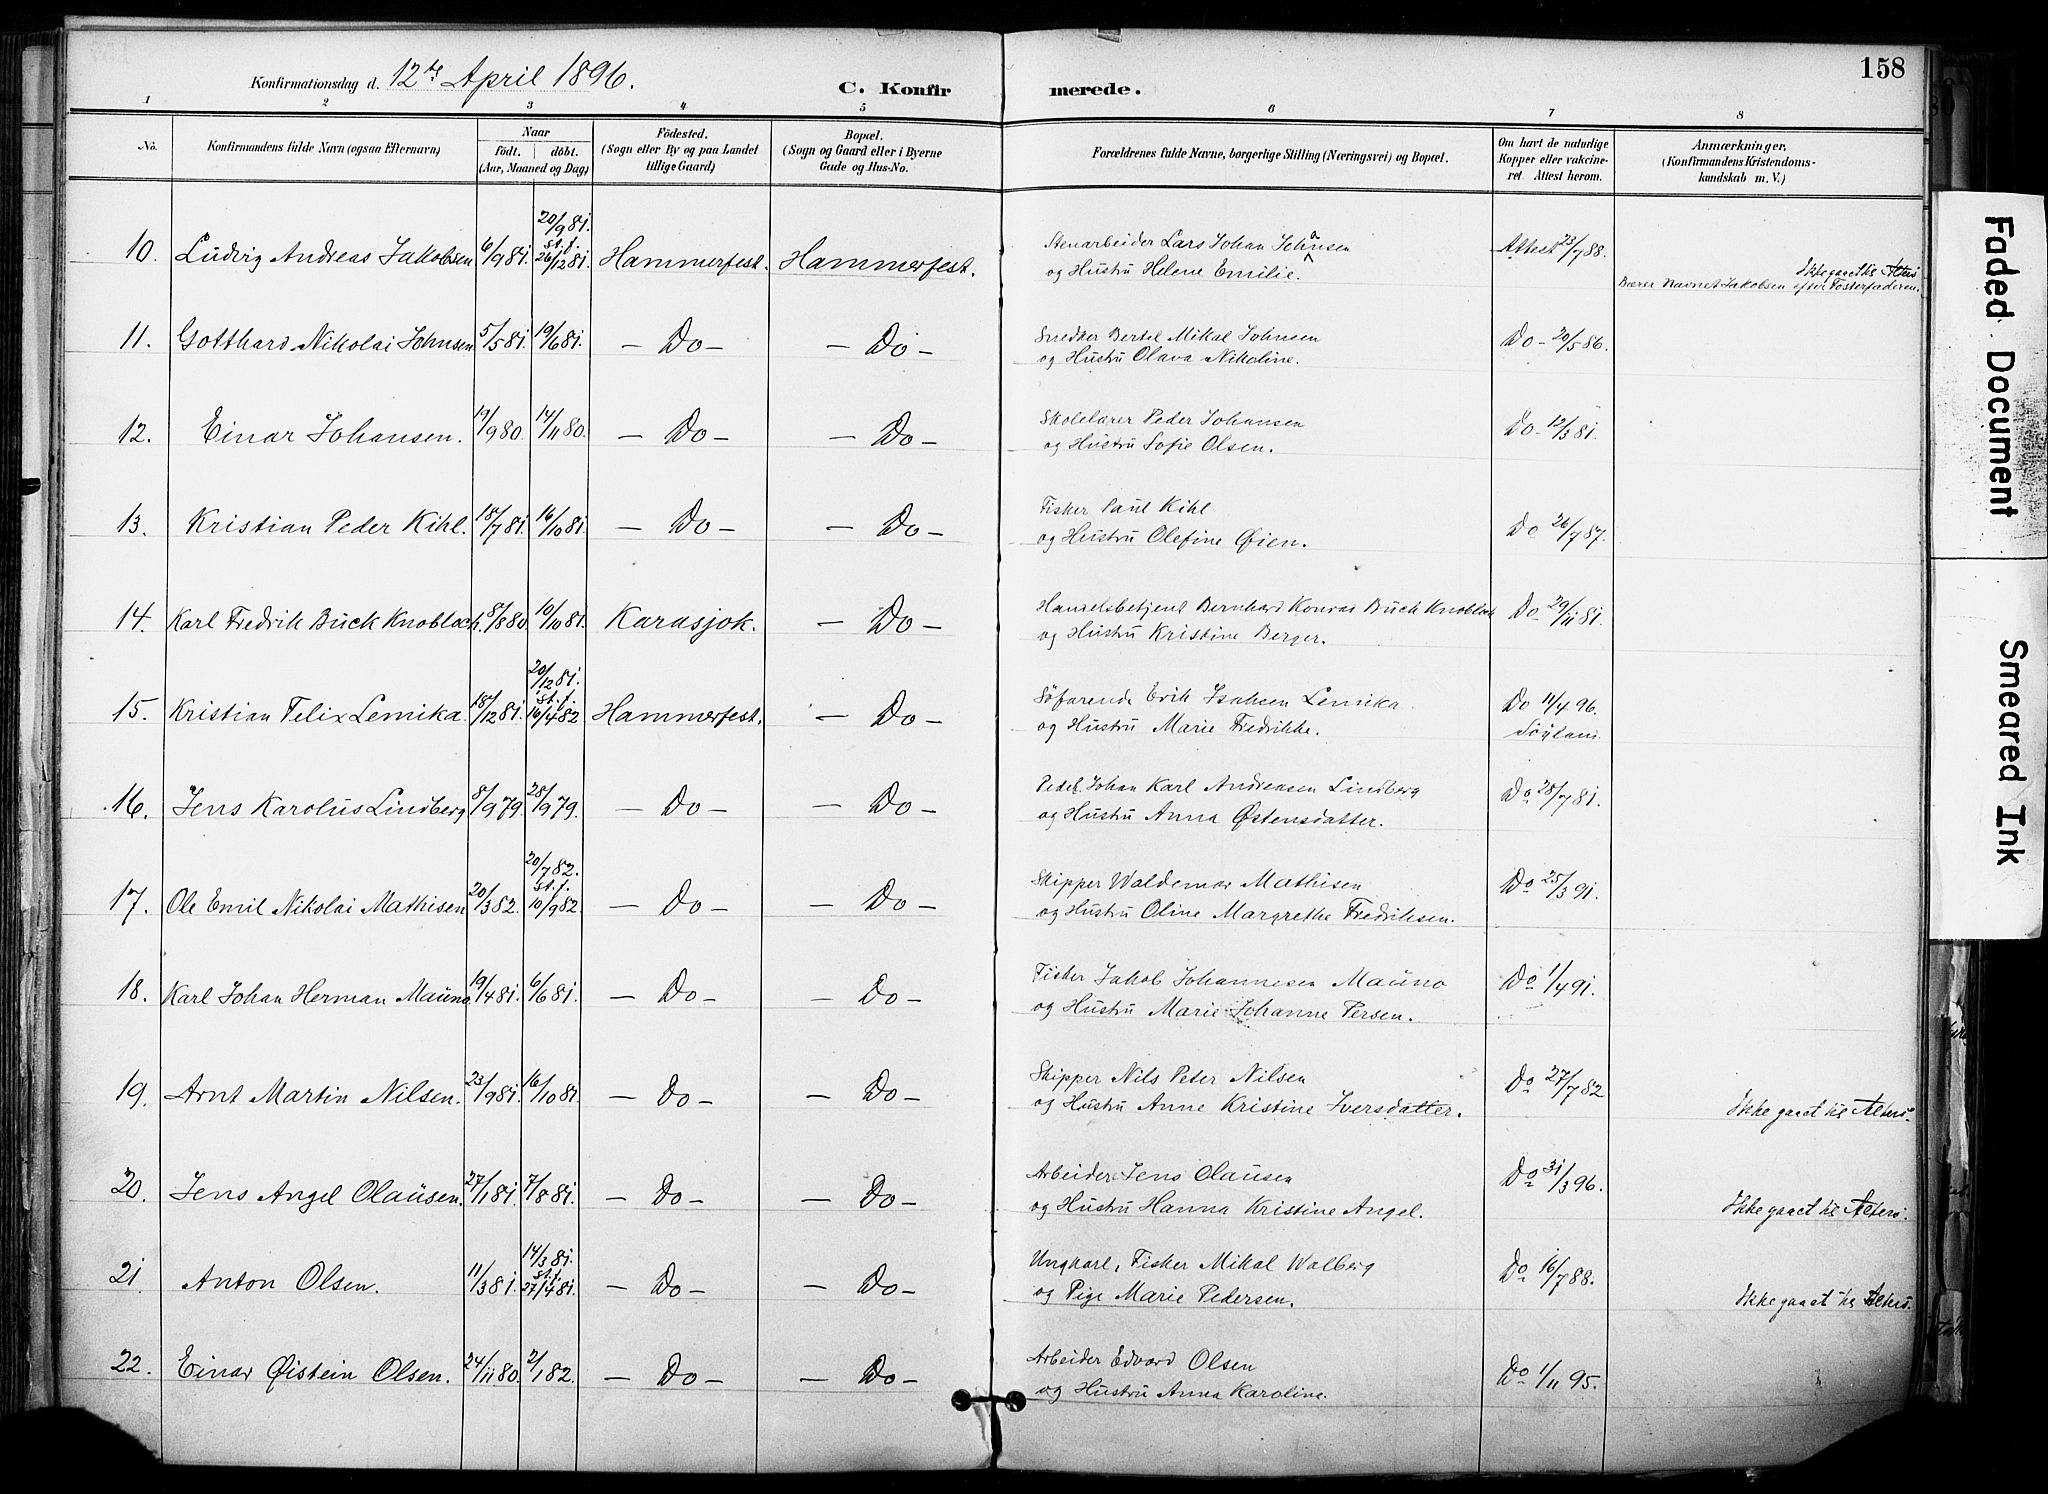 158
Konfirmationsdag d. 12te April 1896.
C. Konfirmerede.
1 2 3 4 5 6 7 8
No.
Konfirmandens fulde Navn (ogsaa Efternavn)
Naar
födt. döbt.
(Aar, Maaned og Dag)
Födested.
(Sogn eller By og paa Landet
tillige Gaard)
Bopæl.
(Sogn og Gaard eller i Byerne
Gade og Hus-No.
Forældrenes fulde Navne, borgerlige Stilling (Næringsvei) og Bopæl.
Om havt de naturlige
Kopper eller vakcine-
ret. Attest herom.
Anmærkninger.
(Konfirmandens Kristendoms-
kundskab m. V.)
10. Ludvig Andreas Jakobsen 6/9 81. 20/9 81. st. f. 26/12 81. Hammerfest. Hammerfest. Stenarbeider Lars Johan Johansen Attest 23/7 88.
og Hustru Helene Emilie. Ikke gaaet til Alters
Bærer Navnet Jakobsen efter Fosterfaderen.
11. Gotthard Nikolai Johnsen 5/5 81. 19/6 81. — Do — — Do — Snedker Bertel Mikal Johnsen Do - 20/5 86.
og Hustru Olava Nikoline.
12. Einar Johansen. 19/9 80. 14/11 80. — Do — — Do — Skolelærer Peder Johansen Do - 12/3 81.
og Hustru Sofie Olsen.
13. Kristian Peder Kihl. 18/7 81. 16/10 81. — Do — — Do — Fisker Paul Kihl Do 26/7 87.
og Hustru Olefine Øien.
14. Karl Fredrik Buck Knobloch. 8/8 80. 10/10 81. Karasjok. — Do — Handelsbetjent Bernhard Konrad Buck Knobloch Do 29/11 81.
og Hustru Kristine Berger.
15. Kristian Felix Lemika. 18/12 81. 20/12 81. st. f. 16/4 82 Hammerfest. — Do — Söfarende Erik Isaksen Lemika Do 11/4 96.
og Hustru Marie Fredrikke.
16. Jens Karolus Lindberg 8/9 79. 28/9 79. — Do — — Do — Pedel Johan Karl Andreasen Lindberg Do 28/7 81.
og Hustru Anna Østensdatter.
17. Ole Emil Nikolai Mathisen 20/3 82. 20/7 82. st. f. 10/9 82. — Do — — Do — Skipper Waldemar Mathisen Do 25/3 91.
og Hustru Oline Margrethe Fredriksen.
18. Karl Johan Herman Mauno. 19/4 81. 6/6 81. — Do — — Do — Fisker Jakob Johannesen Mauno Do 1/4 91.
og Hustru Marie Johanne Persen.
19. Arnt Martin Nilsen. 23/9 81. 16/10 81. — Do — — Do — Skipper Nils Peter Nilsen Do 27/7 82
og Hustru Anne Kristine Iversdatter. Ikke gaaet til Alters.
20. Jens Angel Olausen. 27/1 81. 7/8 81. — Do — — Do — Arbeider Jens Olausen Do 31/3 96.
og Hustru Hanna Kristine Angel. Ikke gaaet til Alters.
21. Anton Olsen. 11/3 81. 14/3 81. st. f. 27/4 81. — Do — — Do — Ungkarl, Fisker Mikal Walberg Do 16/7 88.
og Pige Marie Pedersen. Ikke gaaet til Alters.
22. Einar Øistein Olsen. 24/11 80. 2/1 82. — Do — — Do — Arbeider Edvard Olsen Do 1/11 95.
og Hustru Anna Karoline.
Faded Document
Smeared Ink